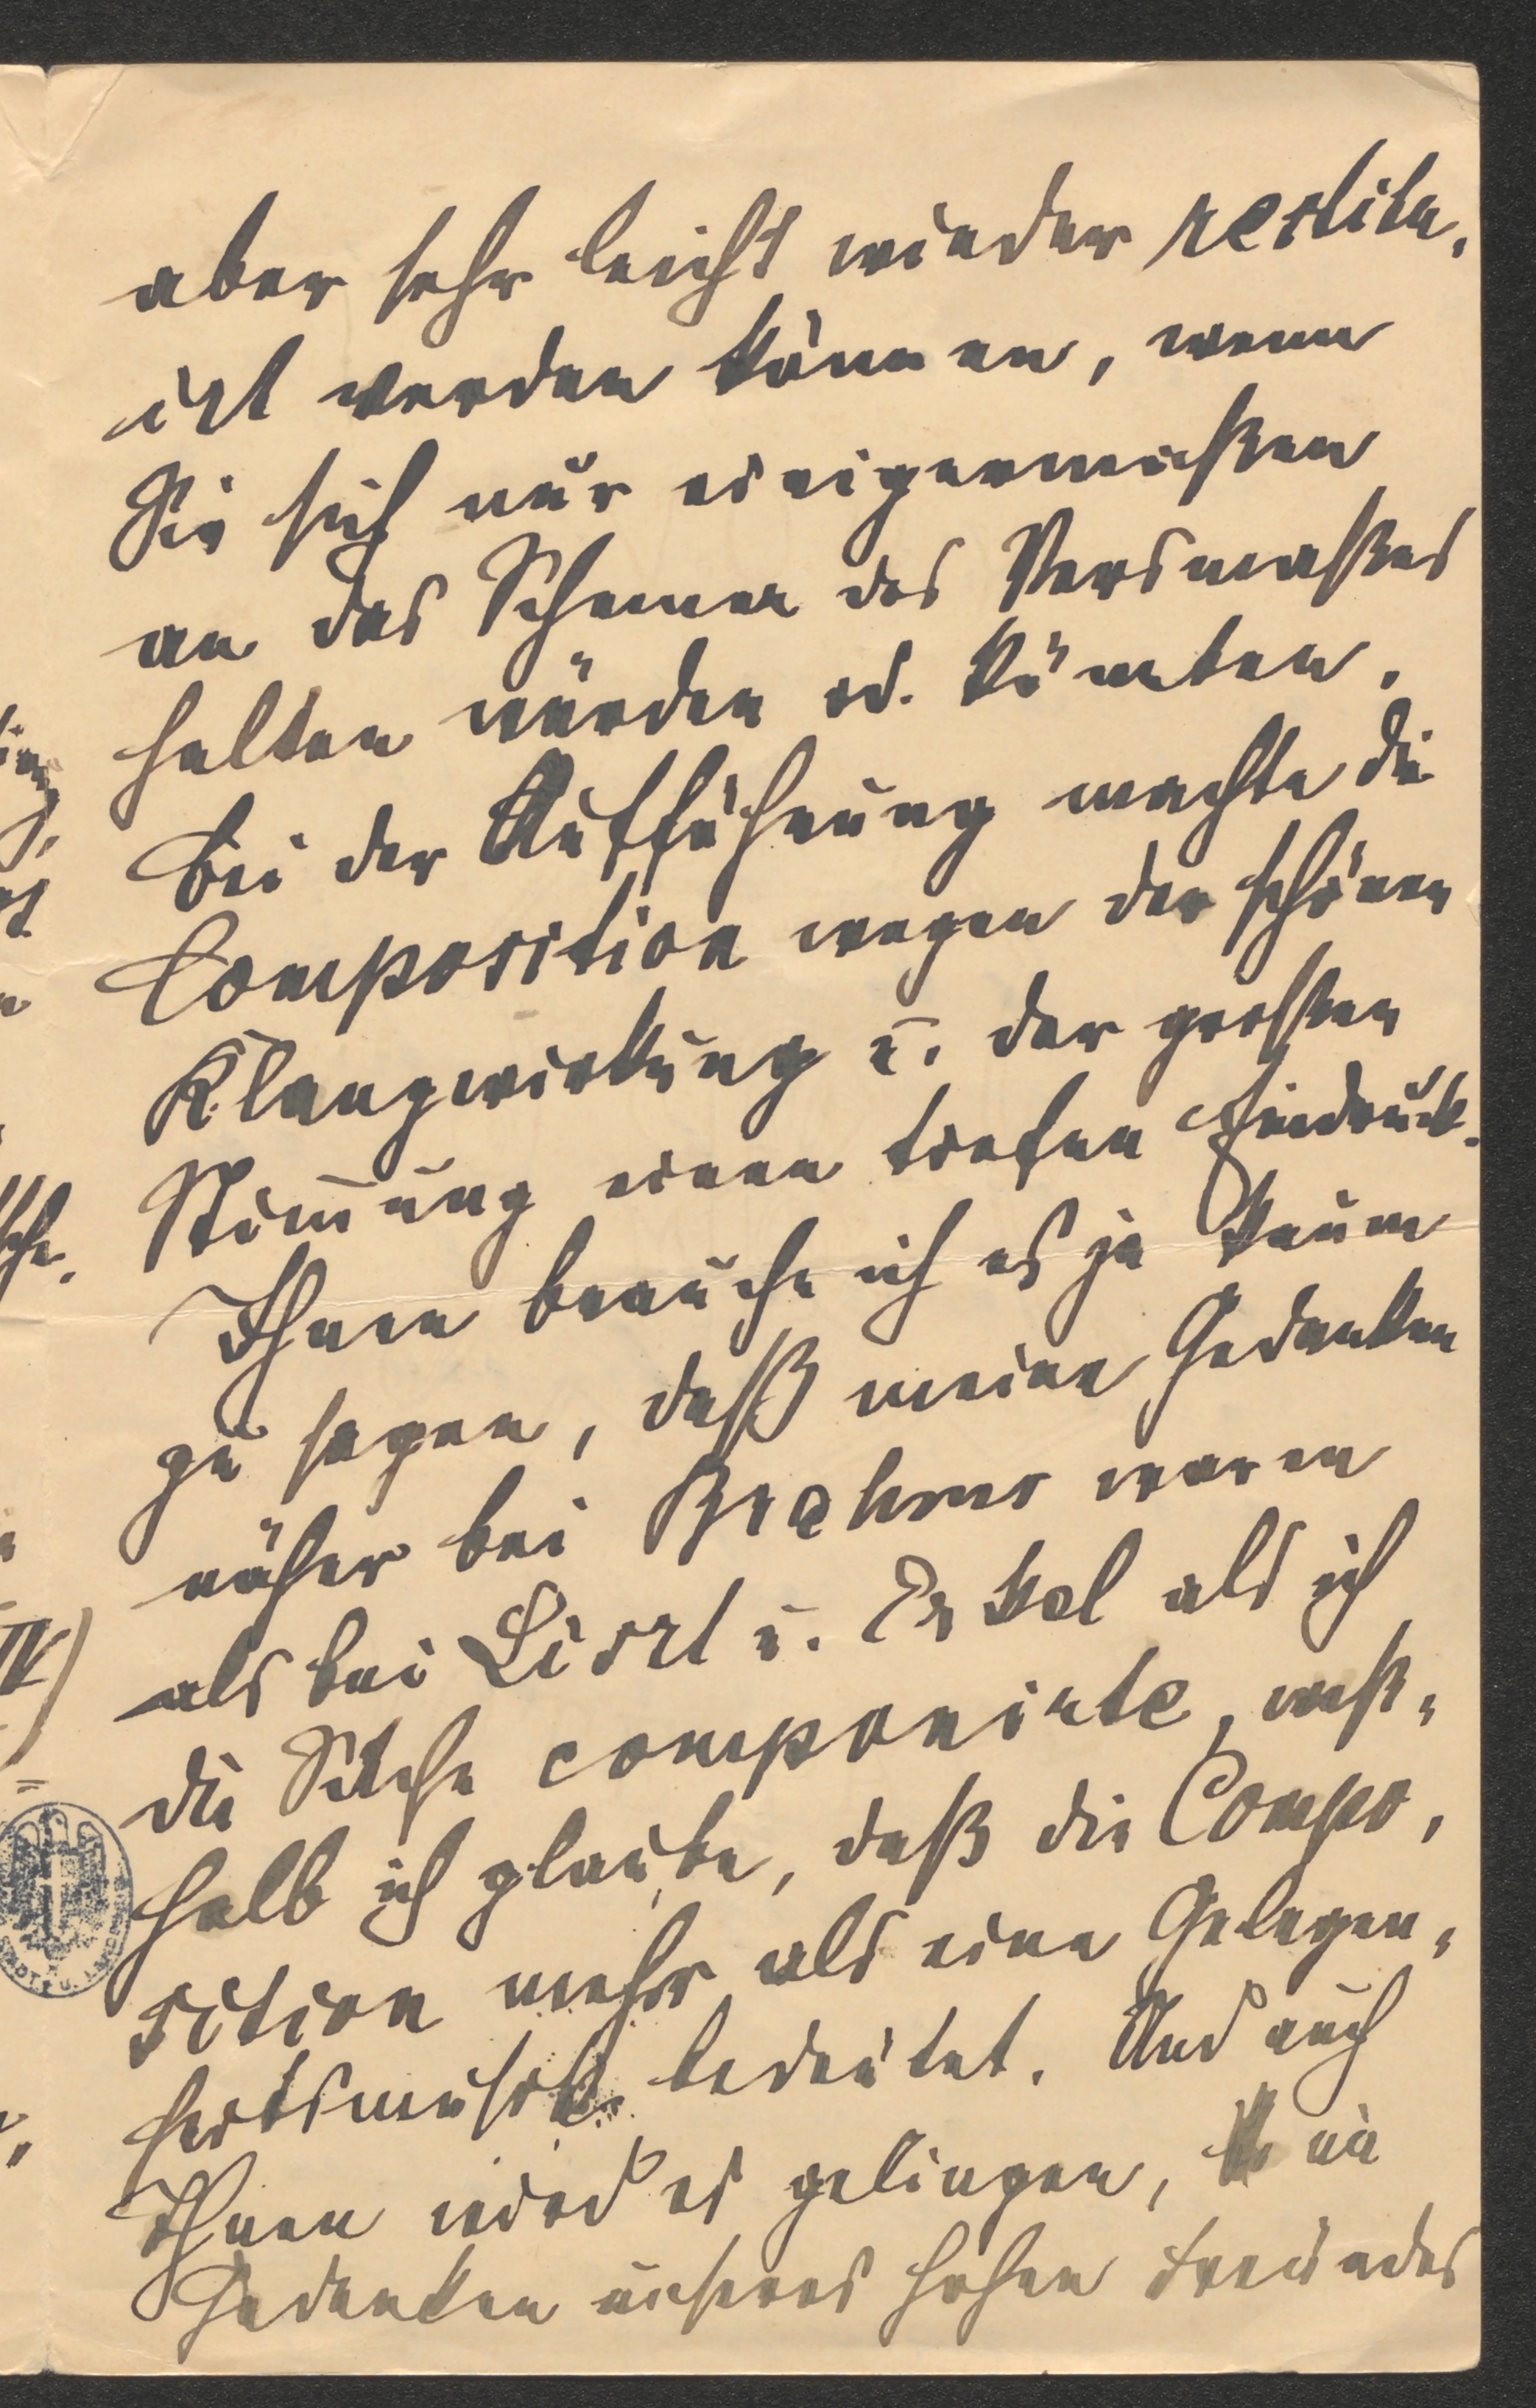 aber sehr leicht wieder restitu-
irt werden können, wenn
Sie sich nur einigermaßen
an das Schema des Versmaßes
halten würden od. könnten.
Bei der Aufführung machte die
Composition wegen der schönen
Klangwirkung u. der großen
Stim̄ung einen tiefen Eindruck.
Ihnen brauche ich es ja kaum
zu sagen, daß meine Gedanken
näher bei Brahms waren
als bei Liszt u. Erkel als ich
die Sache componirte, weß-
halb ich glaube, daß die Compo-
sition mehr als eine Gelegen-
heitsmusik bedeutet. Und auch
Ihnen wird es gelingen, im
Gedenken unseres hohen Freundes